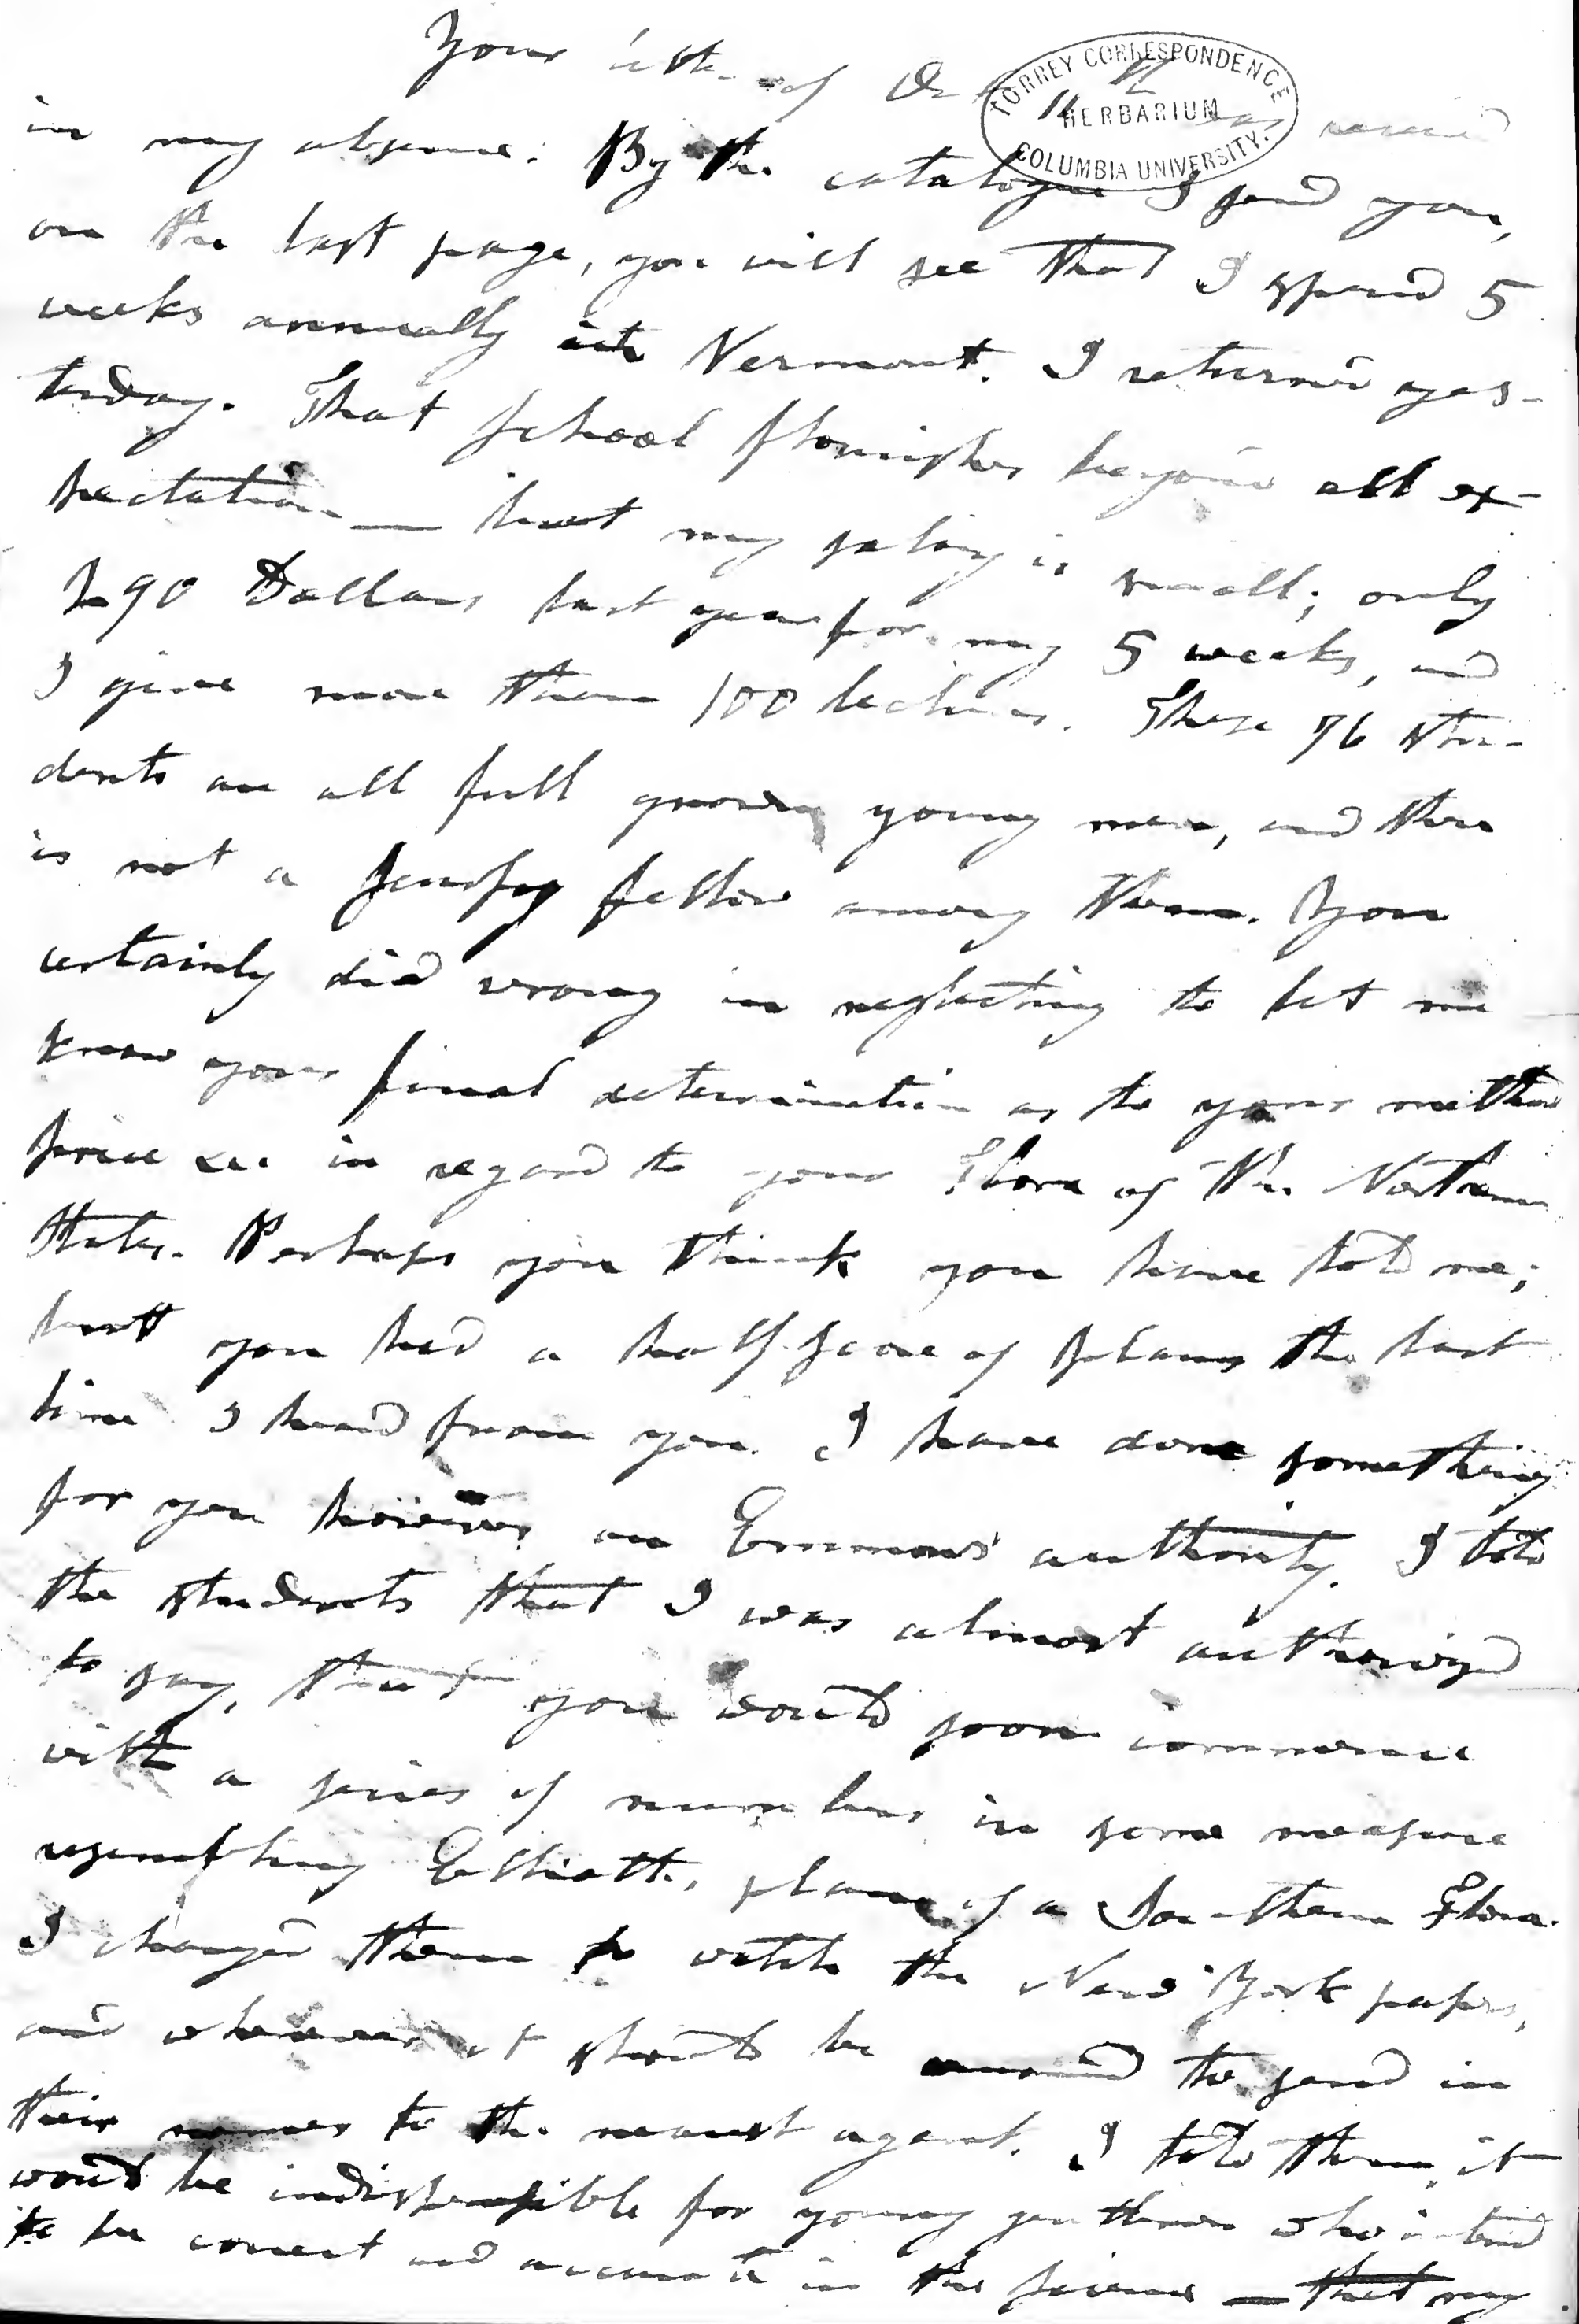 Your letter of Oct 11th was received
TORREY CORRESPONDENCE
HERBARIUM
COLUMBIA UNIVERSITY.
in my absence. By the catalogue I send you,
on the last page, you will see that I spend 5
weeks annually in Vermont. I return'd yes-
terday. That school flourishes beyond all ex-
pectation — but my salary is small; only
290 Dollars last year for my 5 weeks, and
I give more than 100 lectures. These 76 stu-
dents are all full grown young men, and there
is not a fellow among them. You
certainly did wrong in neglecting to let me
know your final determination as to your method
price &c. in regard to your Flora of the Northern
States. Perhaps you think you have told me;
but you had a half score of plans the last
time I heard from you. I have done something
for you however on Emmons' authority. I told
the students that I was almost authorized
to say, that you would soon commence
with a series of numbers in some measure
resembling Elliott's plan of a Southern Flora.
I charged them to watch the New York papers,
and whenever it should be to send in
their names to the nearest agent. I told them it
would be indispensible for young gentlemen who intend
to be correct and accurate in the science — that my